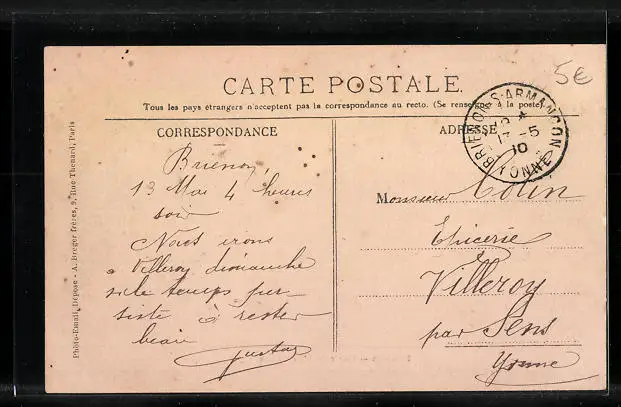 CARTE POSTALE
5€
Tous les pays étrangers n'acceptent pas la correspondance au recto. (Se renseigner à la poste).
CORRESPONDANCE
Brienon
13 Mai 4 heures
soir
Nous irons
à Villeroy dimanche
si le temps per-
siste à rester
beau
Gustav
ADRESSE
BRIENON-S-ARMANÇON
13 -5
10
YONNE
Monsieur Colin
Epicerie
Villeroy
par Sens
Yonne
Photo-Email, Déposé - A. Breger frères, 9, Rue Thenard, Paris